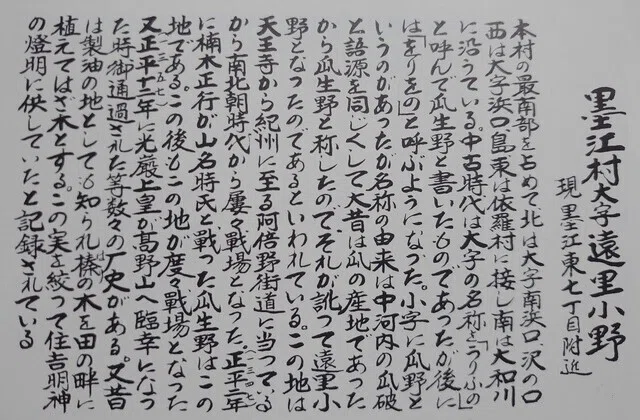 墨江村大字遠里小野
現墨江東七丁目附近
本村の最南部を占めて北は大字南浜口、沢の口
西は大字浜口島、東は依羅村に接し南は大和川
に沿うている。中古時代は大字の名称を「うりふの」
と呼んで瓜生野と書いたものであったが後に
は「をりをの」と呼ぶようになった。小字に瓜野と
いうのがあったが名称の由来は中河内の瓜破
と語源を同じくして大昔は瓜の産地であった
から瓜生野と称したのでそれが訛って遠里小
野となったのであるといわれている。この地は
天王寺から紀州に至る阿倍野街道に当っている
から南北朝時代から屡々戦場となった。正平二年(一三四七)
に楠木正行が山名時氏と戦った瓜生野はこの
地である。この後もこの地が度々戦場となった
又正平十二年(一三五七)に光厳上皇が髙野山へ臨幸になっ
た時御通過された等数々の歴史がある。又昔
は製油の地としても知られ榛の木を田の畔に
植えてはさ木とする。この実を絞って住吉明神
の燈明に供していたと記録されている